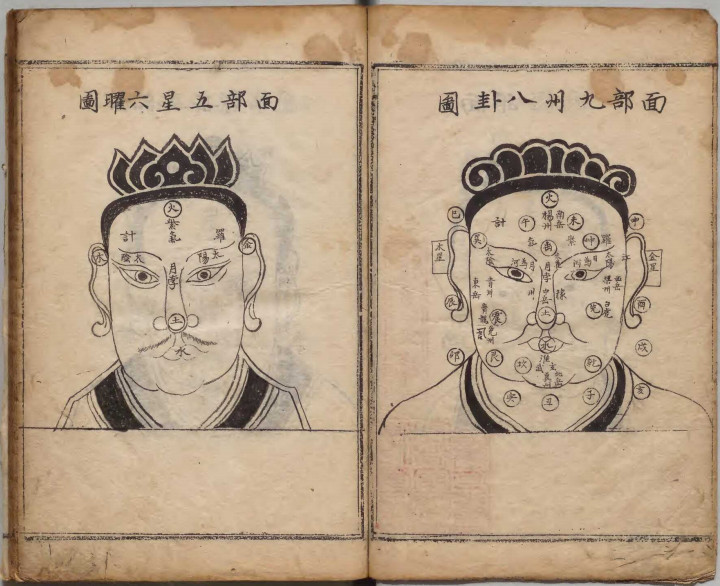 面部九州八卦圖
火
南岳
楊州
計
午
未
巳
申
巽
坤
羅
太陰
太陽
月孛
木星
金星
東岳
青州
西岳
梁州
中岳
土
辰
震
兌
白虎
酉
兗州
戌
卯
艮
水
坎
乾
亥
丑
子
面部五星六曜圖
火
紫氣
計
羅
木
金
太陰
太陽
月孛
土
水